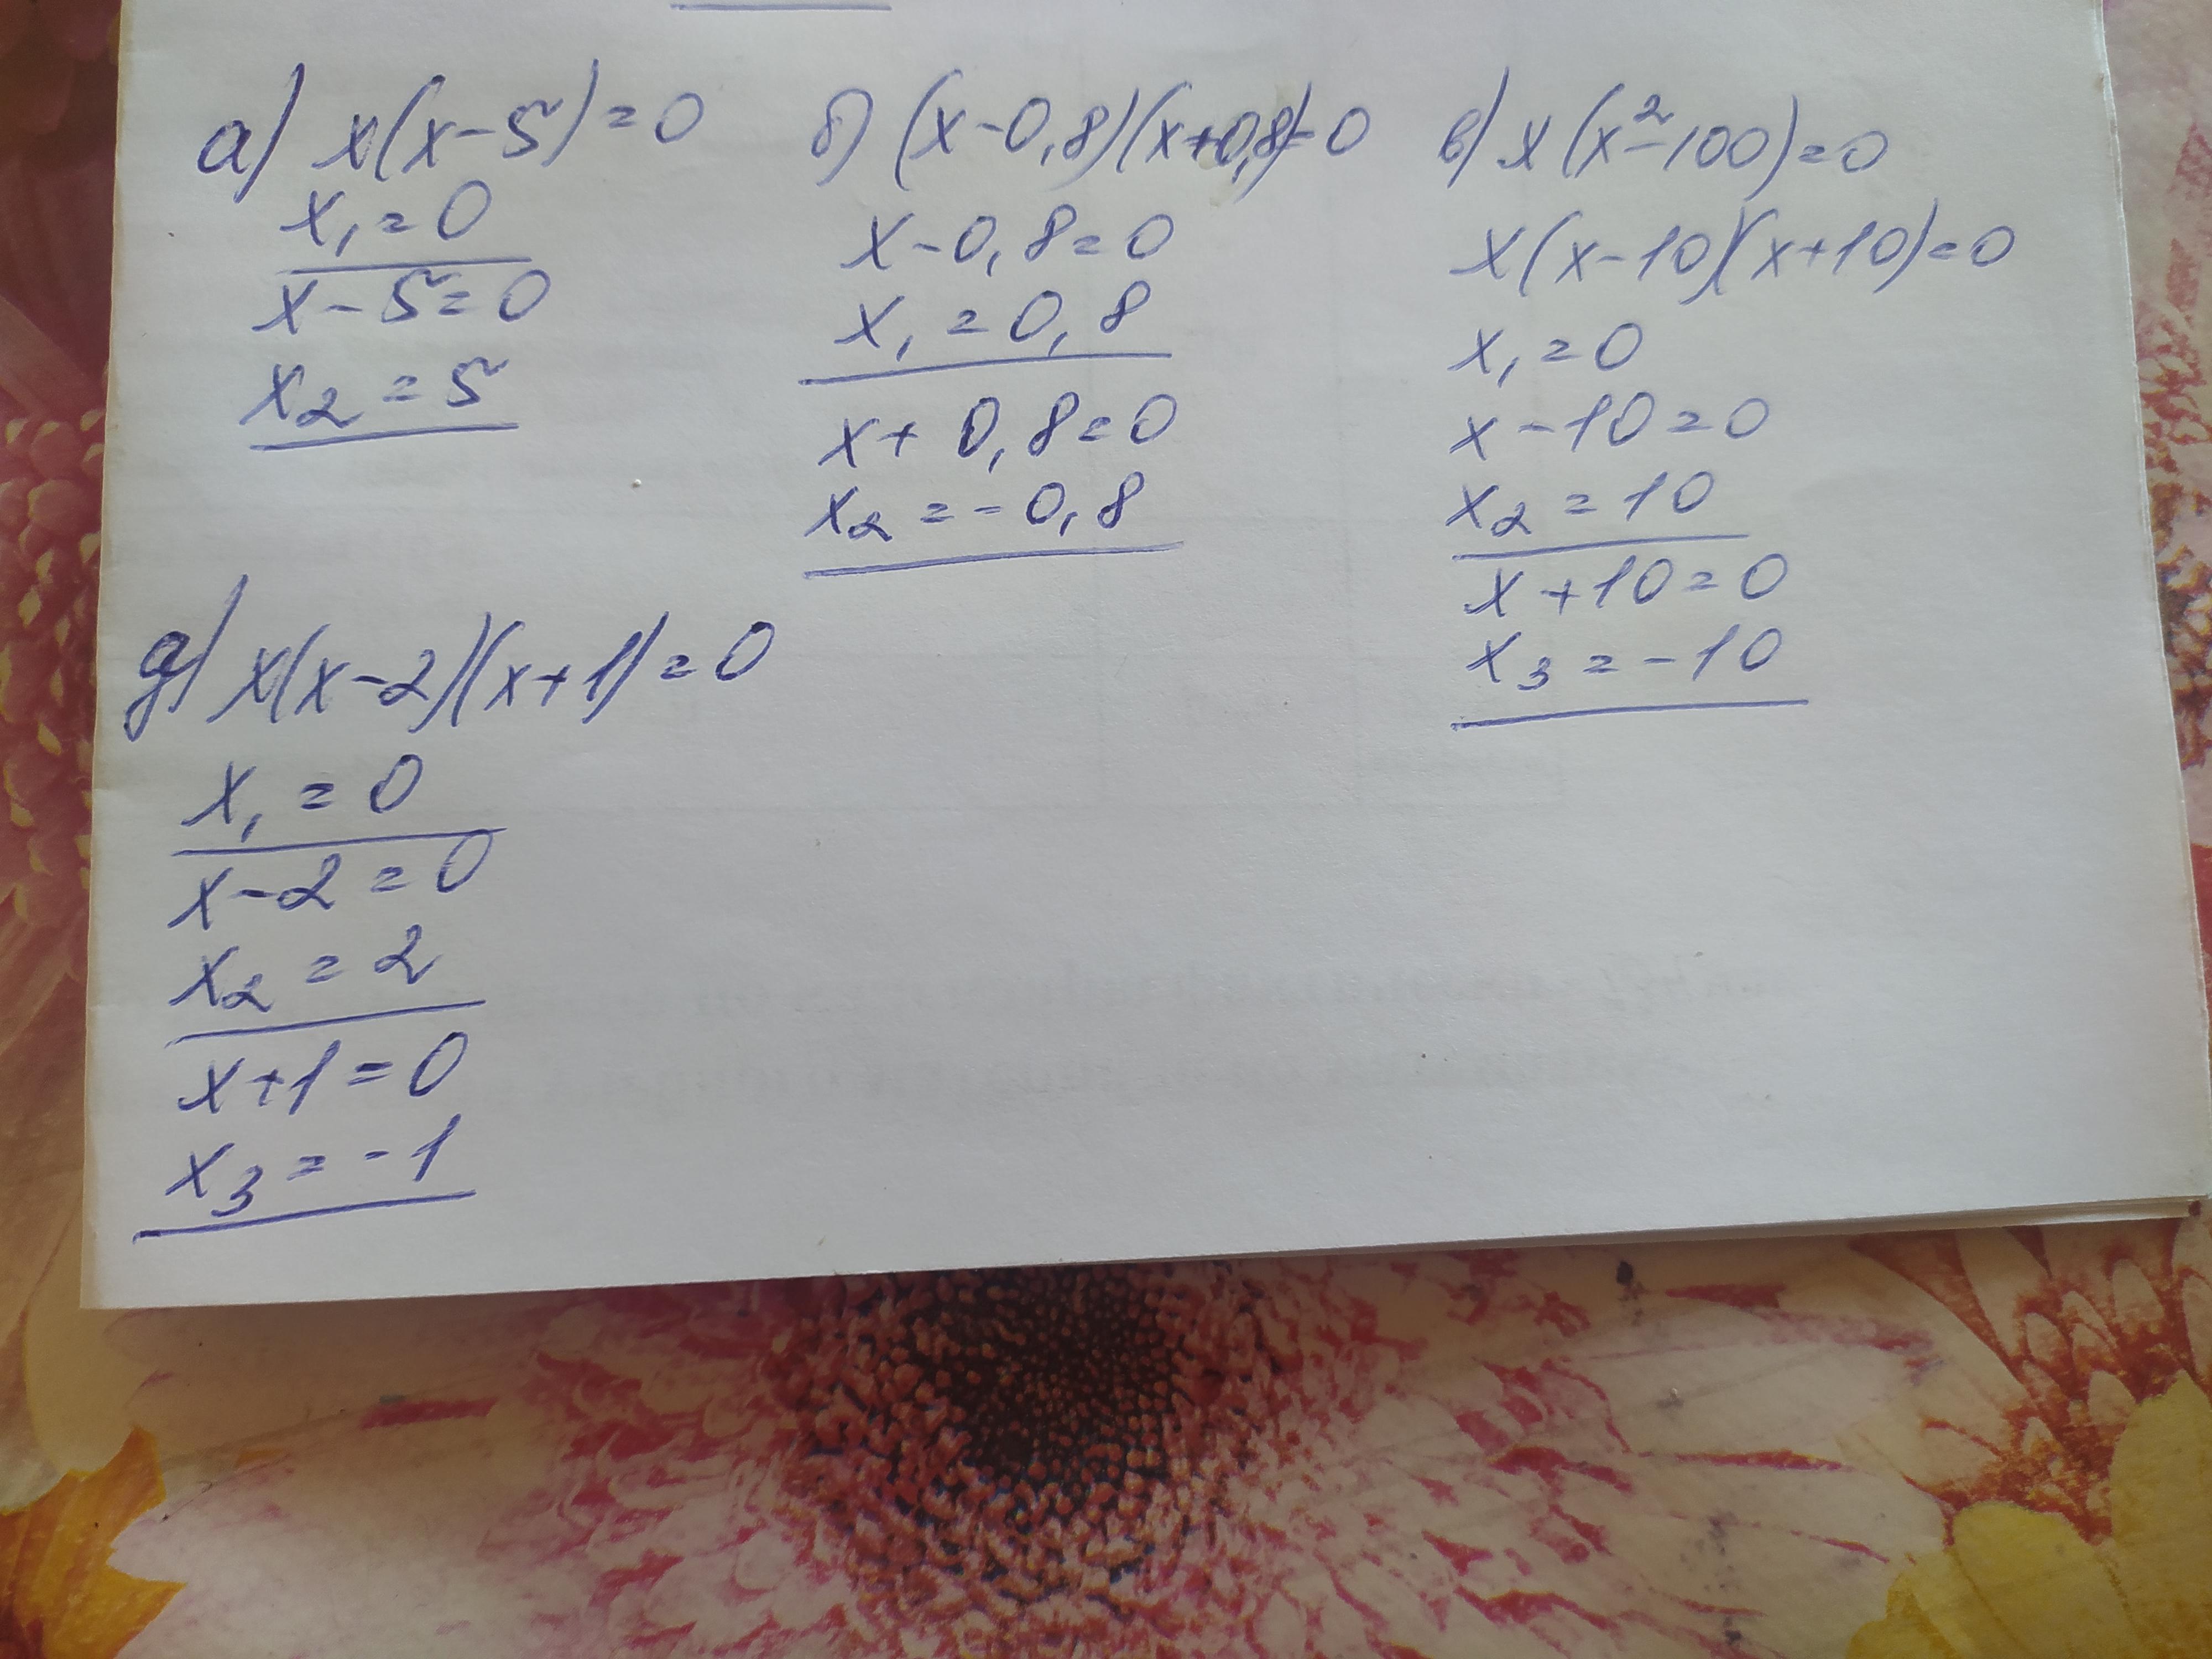 а) x(x-5)=0
x₁=0
x-5=0
x₂=5
б) (x-0,8)(x+0,8)=0
x-0,8=0
x₁=0,8
x+0,8=0
x₂=-0,8
в) x(x²-100)=0
x(x-10)(x+10)=0
x₁=0
x-10=0
x₂=10
x+10=0
x₃=-10
д) x(x-2)(x+1)=0
x₁=0
x-2=0
x₂=2
x+1=0
x₃=-1